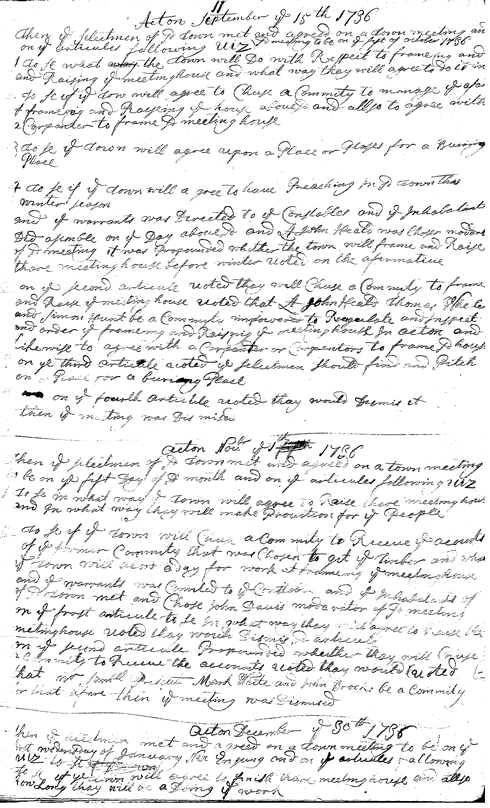 11
Acton September ye 15th 1736
then ye selectmen of sd town met and agreed on a town meeting
on ye articules following viz sd meeting to be on ye first of october 1736
1 to se what the town will Do with Respect to frameing and
and Raising ye meetinghouse and what way they will agree to do it in
to se if ye tow will agree to Chuse a Commity to manage ye
framing and Raising ye house abouesd and allso to agree with
a Carpenter to frame sd meeting house
3 to se if ye town will agree upon a Place or Plases for a Buring
Place
4 to se if ye town will a gree to haue Preaching in sd town this
winter season
and ye warrants was Directed to ye Constables and ye Inhabatants
Did asemble on ye Day abouesd and John Heald was Chosen
of sd meeting it was Propounded whether the town will frame and Raise
thare meeting house before winter voted on the afirmatiue
on ye second articule voted they will Chuse a Commity to frame
and Raise ye meetinghouse voted that John Heald Thomas Wheeler
and Simon Hunt be a Commity impowered to Regulate and Inspect
and order ye frameing and Raising ye meetinghouse In acton and
Likewise to agree with a Carpenter or Carpentors to frame sd house
on ye third articule voted ye selectmen should find and Pitch
on a Place for a buring Place
on ye fourth articule voted thay would Dismis it
then ye meeting was Dismised
acton Nour ye 1736
then ye selectmen of sd town met and agreed on a town meeting
be on ye fist Day of sd month and on ye articules following viz
to se in what way ye town will agree to Raise thare meetinghouse
and In what way they will make Prouition for ye People
to se if ye town will Chuse a Commity to Receue ye acounts
of ye former Commity that was Chosen to get ye timber and
ye town will alow a Day for work at frameing ye meetinghouse
and ye warrants was Commited to ye Constables and ye Inhabatants of
sd town met and Chose John Dauis moderator of sd meeting
on ye frost articule to se In what way they will agree to Raise the
meetinghouse voted they would Dismis sd articule
on ye second articule Propounded whether they will Chuse
a Commity to Receue the accounts voted they would voted
that mr Samll Prescutt Mark White and John Brooks be a Commity
for that afare then ye meeting was Dismised
acton December ye 30th 1736
then ye selectmen met and agreed on a town meeting to be on ye
Day of January Nex Ensuing and on ye articules following
viz to se
to se if ye town will agree to finish thare meetinghouse and allso
how Long they will be a Doing ye work